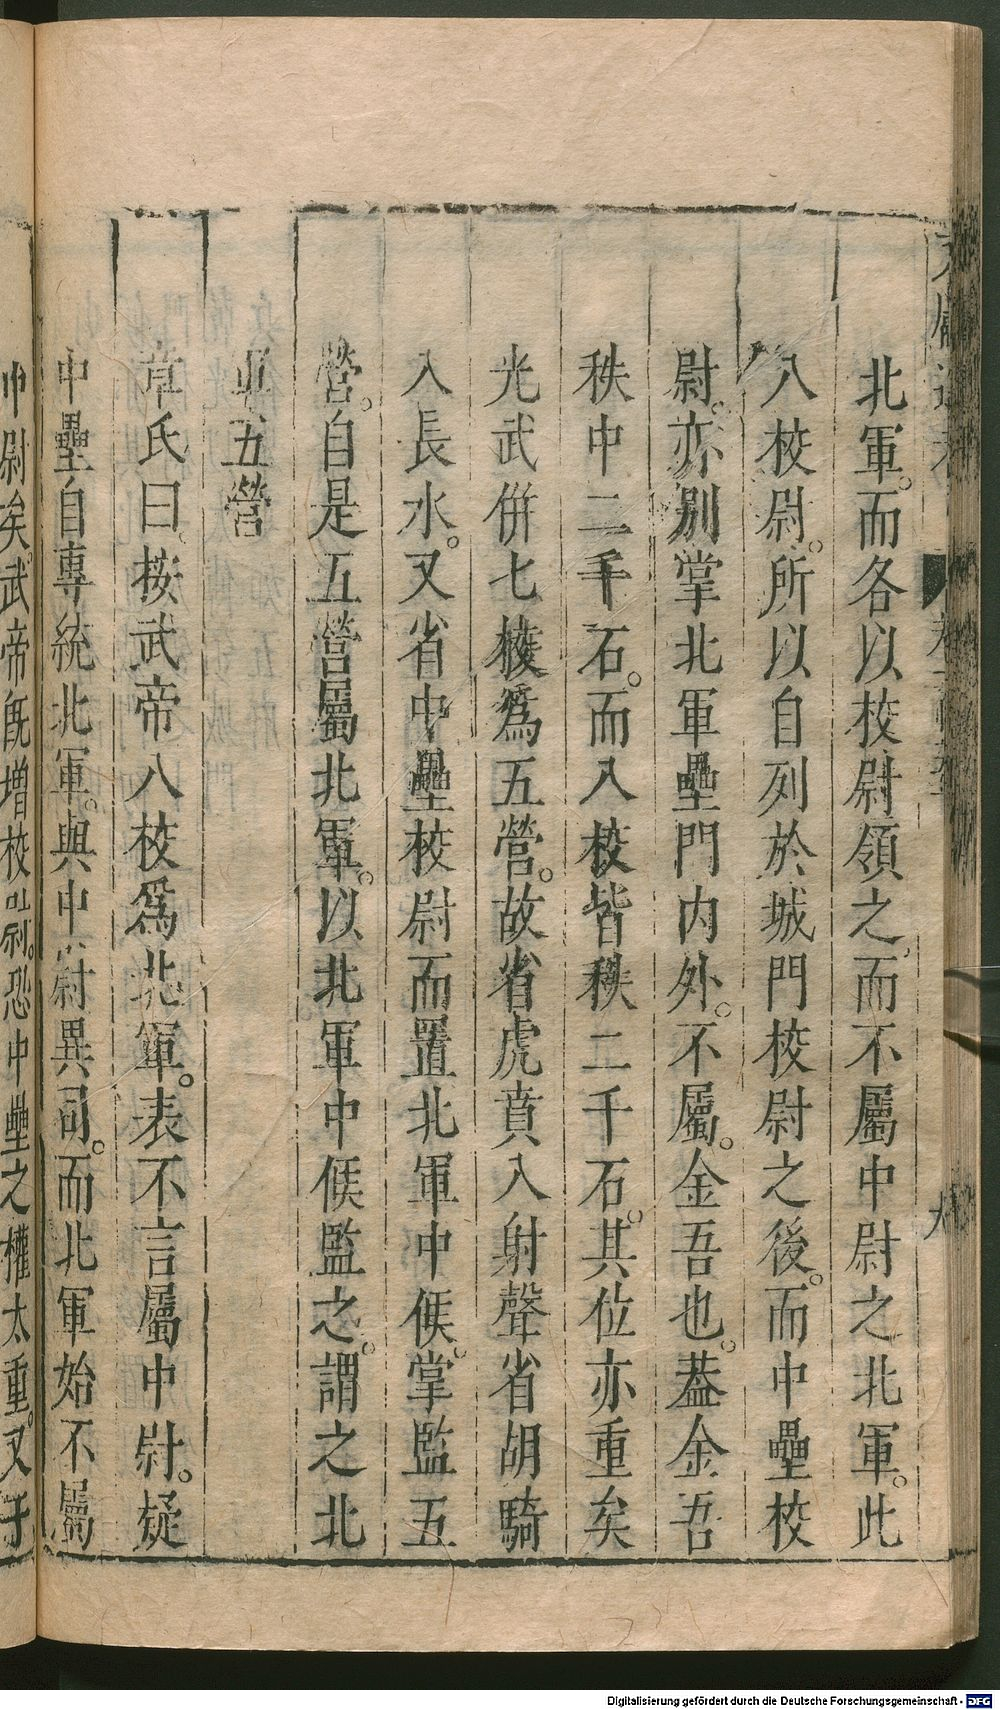 北軍。而各以校尉領之、而不屬中尉之北軍。此
八校尉。所以自列於城門校尉之後。而中壘校
尉。亦別掌北軍壘門內外。不屬。金吾也。葢金吾
秩中二千石。而八校皆秩二千石。其位亦重矣
光武併七校爲五營。故省虎賁入射聲省胡騎
入長水。又省中壘校尉而置北軍中候。掌監五
營。自是五營屬北軍。以北軍中候監之。謂之北
軍五營
章氏曰、按武帝八校爲北軍。表不言屬中尉。疑
中壘自專統北軍。與中尉異司。而北軍始不屬
中尉矣。武帝旣增校尉。恐中壘之權太重。又于
九
Digitalisierung gefördert durch die Deutsche Forschungsgemeinschaft - DFG